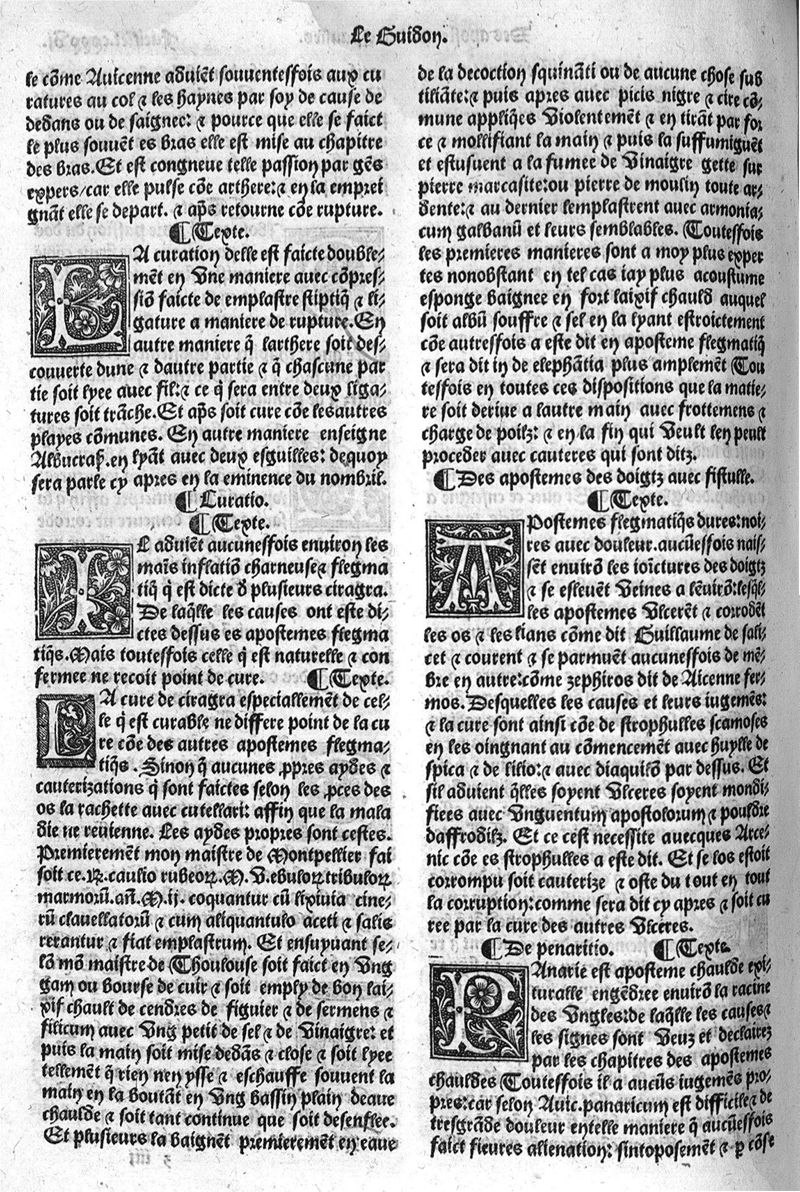 Le Guidon.
le cõme Auicenne aduiẽt souuentesfois aux cu
ratures au col ⁊ les haynes par soy de cause de
dedans ou de saigner: ⁊ pource que elle se faict
le plus souuẽt es bras elle est mise au chapitre
des bras. Et est congneue telle passion par gẽs
expers/car elle pulse cõe arthere: ⁊ en la emprei
gnãt elle se depart. ⁊ ap̃s retourne cõe rupture.
¶Texte.
LA curation delle est faicte double-
mẽt en vne maniere auec cõpres-
siõ faicte de emplastre stiptiq̃ ⁊ li-
gature a maniere de rupture. En
autre maniere q̃ larthere soit des-
couuerte dune ⁊ dautre partie ⁊ q̃ chascune par
tie soit lyee auec fil: ⁊ ce q̃ sera entre deux liga-
tures soit trãche. Et ap̃s soit cure cõe les autres
playes cõmunes. En autre maniere enseigne
Albucras̃. en lyãt auec deux esguilles: dequoy
sera parle cy apres en la eminence du nombril.
¶Curatio.
¶Texte.
IL aduiẽt aucunesfois enuiron les
maĩs inflatiõ charneuse ⁊ flegma
tiq̃ q̃ est dicte d̃ plusieurs ciragra.
De laq̃lle les causes ont este di-
ctes dessus es apostemes flegma
tiq̃s. Mais toutesfois celle q̃ est naturelle ⁊ con
fermee ne recoit point de cure. ¶Texte.
LA cure de ciragra especiallemẽt de cel-
le q̃ est curable ne differe point de la cu
re cõe des autres apostemes flegma-
tiq̃s. Sinon q̃ aucunes ꝓpres aydes ⁊
cauterizations q̃ sont faictes selon les ꝓces des
os la rachette auec cutellari: affin que la mala
die ne reuienne. Les aydes propres sont cestes.
Premieremẽt mon maistre de Montpellier fai
soit ce. ℞. caulio rubeoꝝ. M. v. ebuloꝝ tribuloꝝ
marmoꝝ. añ. M. ij. coquantur cũ lixiuia cine-
rũ clauellatorũ ⁊ cum aliquantulo aceti ⁊ salis
terantur ⁊ fiat emplastrum. Et ensuyuant se-
lõ mõ maistre de Thoulouse soit faict en vng
gam ou bourse de cuir ⁊ soit emply de bon lai-
xif chault de cendres de figuier ⁊ de sermens ⁊
filicum auec vng petit de sel ⁊ de vinaigre: et
puis la main soit mise dedãs ⁊ close ⁊ soit lyee
tellemẽt q̃ rien nen ysse ⁊ eschauffe souuent la
main en la boutãt en vng bassin plain deaue
chaulde ⁊ soit tant continue que soit desenflee.
Et plusieurs la baignẽt premieremẽt en eaue
de la decoction squinãti ou de aucune chose sub
tiliãte: ⁊ puis apres auec picis nigre ⁊ cire cõ-
mune appliq̃es violentemẽt ⁊ en tirãt par for
ce ⁊ mollifiant la main ⁊ puis la suffumiguẽt
et estuuent a la fumee de vinaigre gette sur
pierre marcasite: ou pierre de moulin toute ar-
dente: ⁊ au dernier lemplastrent auec armonia-
cum galbanũ et leurs semblables. Toutesfois
les premieres manieres sont a moy plus exper
tes nonobstant en tel cas iay plus acoustume
esponge baignee en fort laixif chauld auquel
soit albũ souffre ⁊ sel en la lyant estroictement
cõe autresfois a este dit en aposteme flegmatiq̃
⁊ sera dit in de elephãtia plus amplemẽt Tou
tesfois en toutes ces dispositions que la matie-
re soit deriue a lautre main auec frottemens ⁊
charge de poilz: ⁊ en la fin qui veult len peult
proceder auec cauteres qui sont ditz.
¶Des apostemes des doigtz auec fistulle.
¶Texte.
APostemes flegmatiq̃s dures: noi-
res auec douleur. aucũesfois nais-
sẽt enuirõ les ioĩctures des doigtz
⁊ se esleuẽt veines a lẽuirõ: lesq̃l-
les apostemes vlcerẽt ⁊ corrodẽt
les os ⁊ les lians cõme dit Guillaume de sali-
cet ⁊ courent ⁊ se parmuẽt aucunesfois de mẽ-
bre en autre: cõme zephiros dit de Aicenne fer-
mos. Desquelles les causes et leurs iugemẽs:
⁊ la cure sont ainsi cõe de strophulles scamoses
en les oingnant au cõmencemẽt auec huylle de
spica ⁊ de lilio: ⁊ auec diaquilõ par dessus. Et
sil aduient q̃lles soyent vlceres soyent mondi-
fiees auec vnguentum apostolorum ⁊ pouldre
daffrodilz. Et ce cest necessite auecques Arce-
nic cõe es strophulles a este dit. Et se los estoit
corrompu soit cauterize ⁊ oste du tout en tout
la corruption: comme sera dit cy apres ⁊ soit cu
ree par la cure des autres vlceres.
¶De penaritio. ¶Texte.
PAnarie est aposteme chaulde exi-
turalle engẽdree enuirõ la racine
des vngles: de laq̃lle les causes ⁊
les signes sont veuz et declairez
par les chapitres des apostemes
chauldes Toutesfois il a aucũs iugemẽs pro-
pres: car selon Auic. panaricum est difficile ⁊ de
tresgrãde douleur en telle maniere q̃ aucũesfois
faict fieures alienation: sintoposemẽt ⁊ p̱ cõse